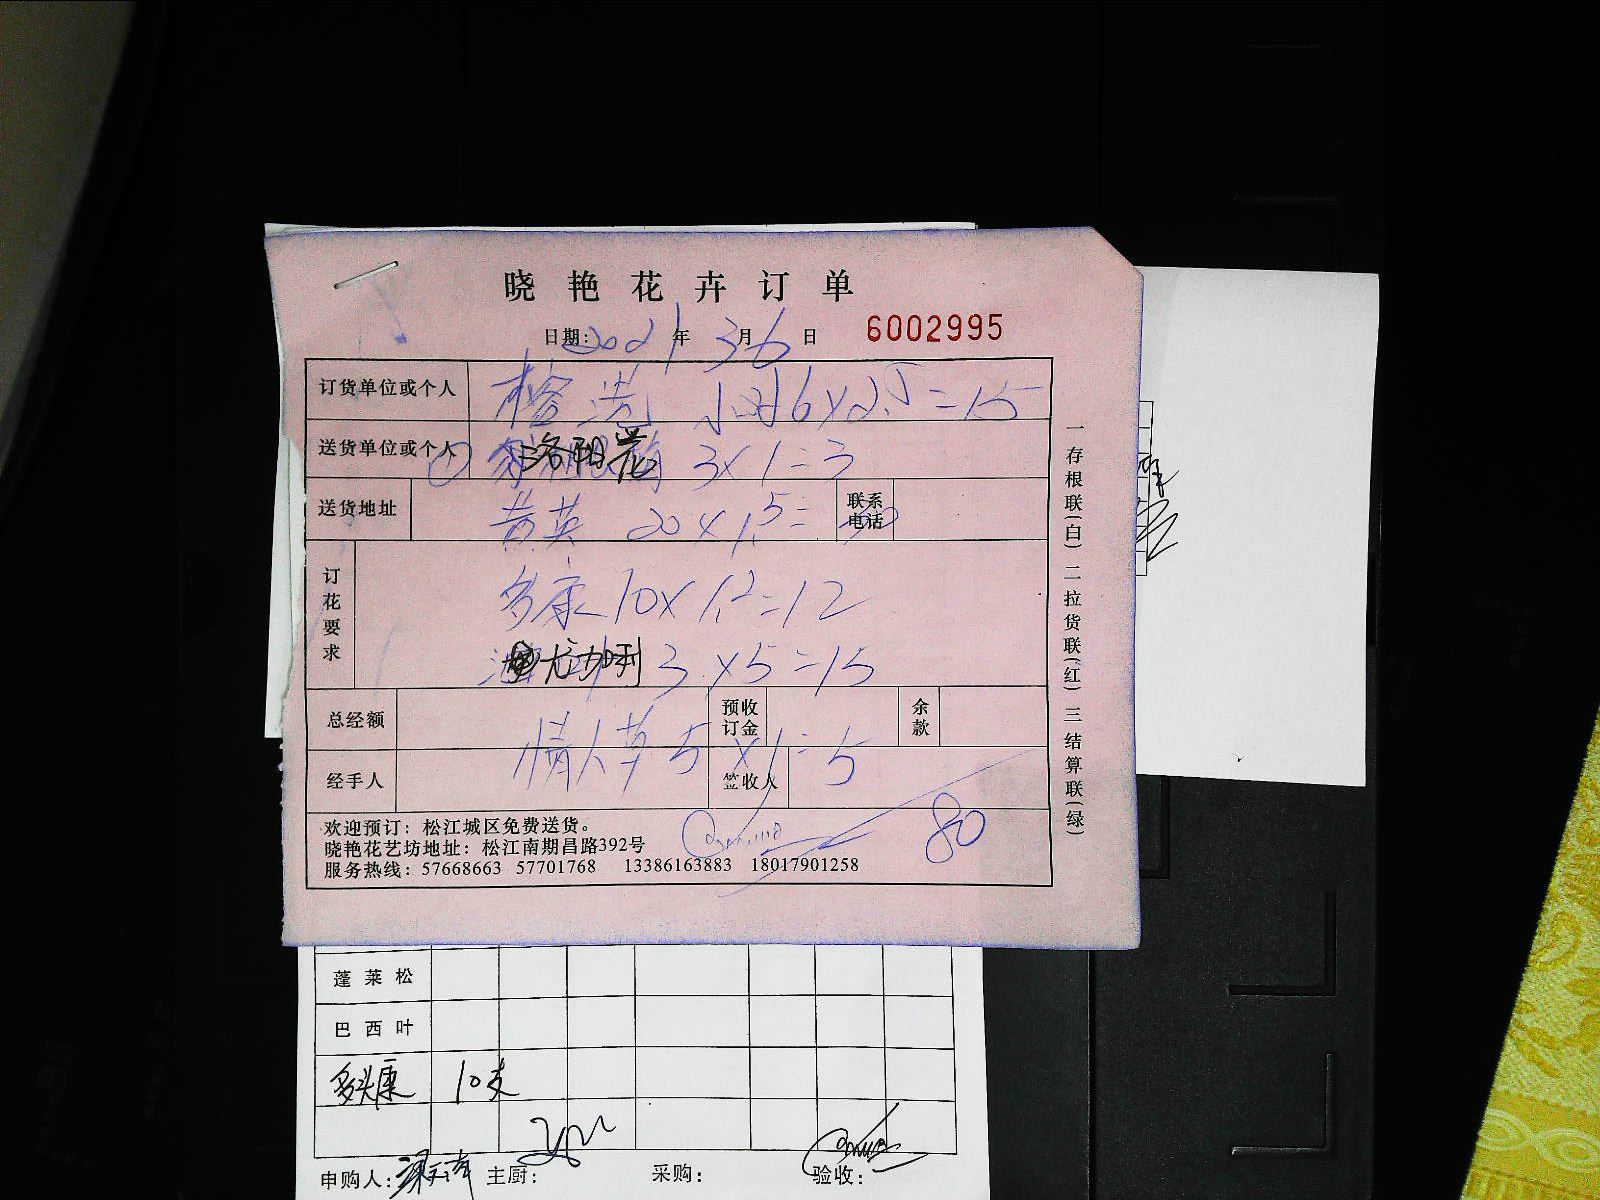 晓艳花卉订单
日期: 2021年3月6日 6002995
订货单位或个人 榕港 6×2.5=15
送货单位或个人 ① 洛阳花 3×1=3
送货地址 黄英 20×1.5=30 联系电话
订花要求 多康 10×1.2=12
尤加利 3×5=15
总经额 预收订金 余款
情人草 5×1=5
经手人 签收人
80
欢迎预订：松江城区免费送货。
晓艳花艺坊地址：松江南期昌路392号
服务热线：57668663 57701768 13386163883 18017901258
一存根联(白)二拉货联(红)三结算联(绿)
蓬莱松
巴西叶
多头康 10支
申购人: 主厨: 采购: 验收: